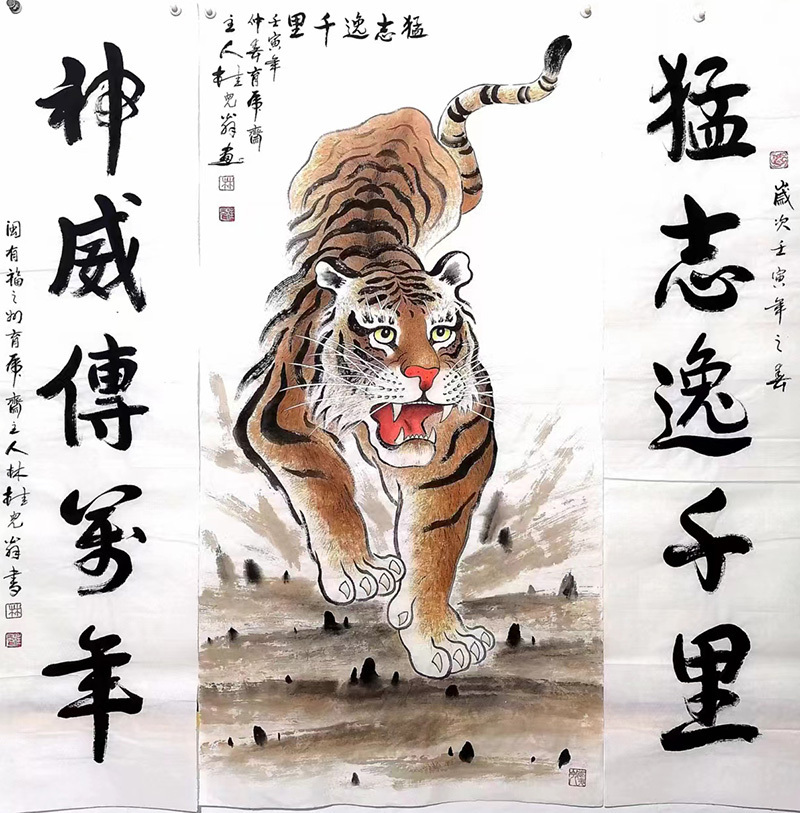 猛志逸千里
歲次壬寅年之春
猛志逸千里
壬寅年
仲春育虎齋
主人林桂光翁画
神威傳萬年
閩有福之州育虎齋主人林桂光翁書